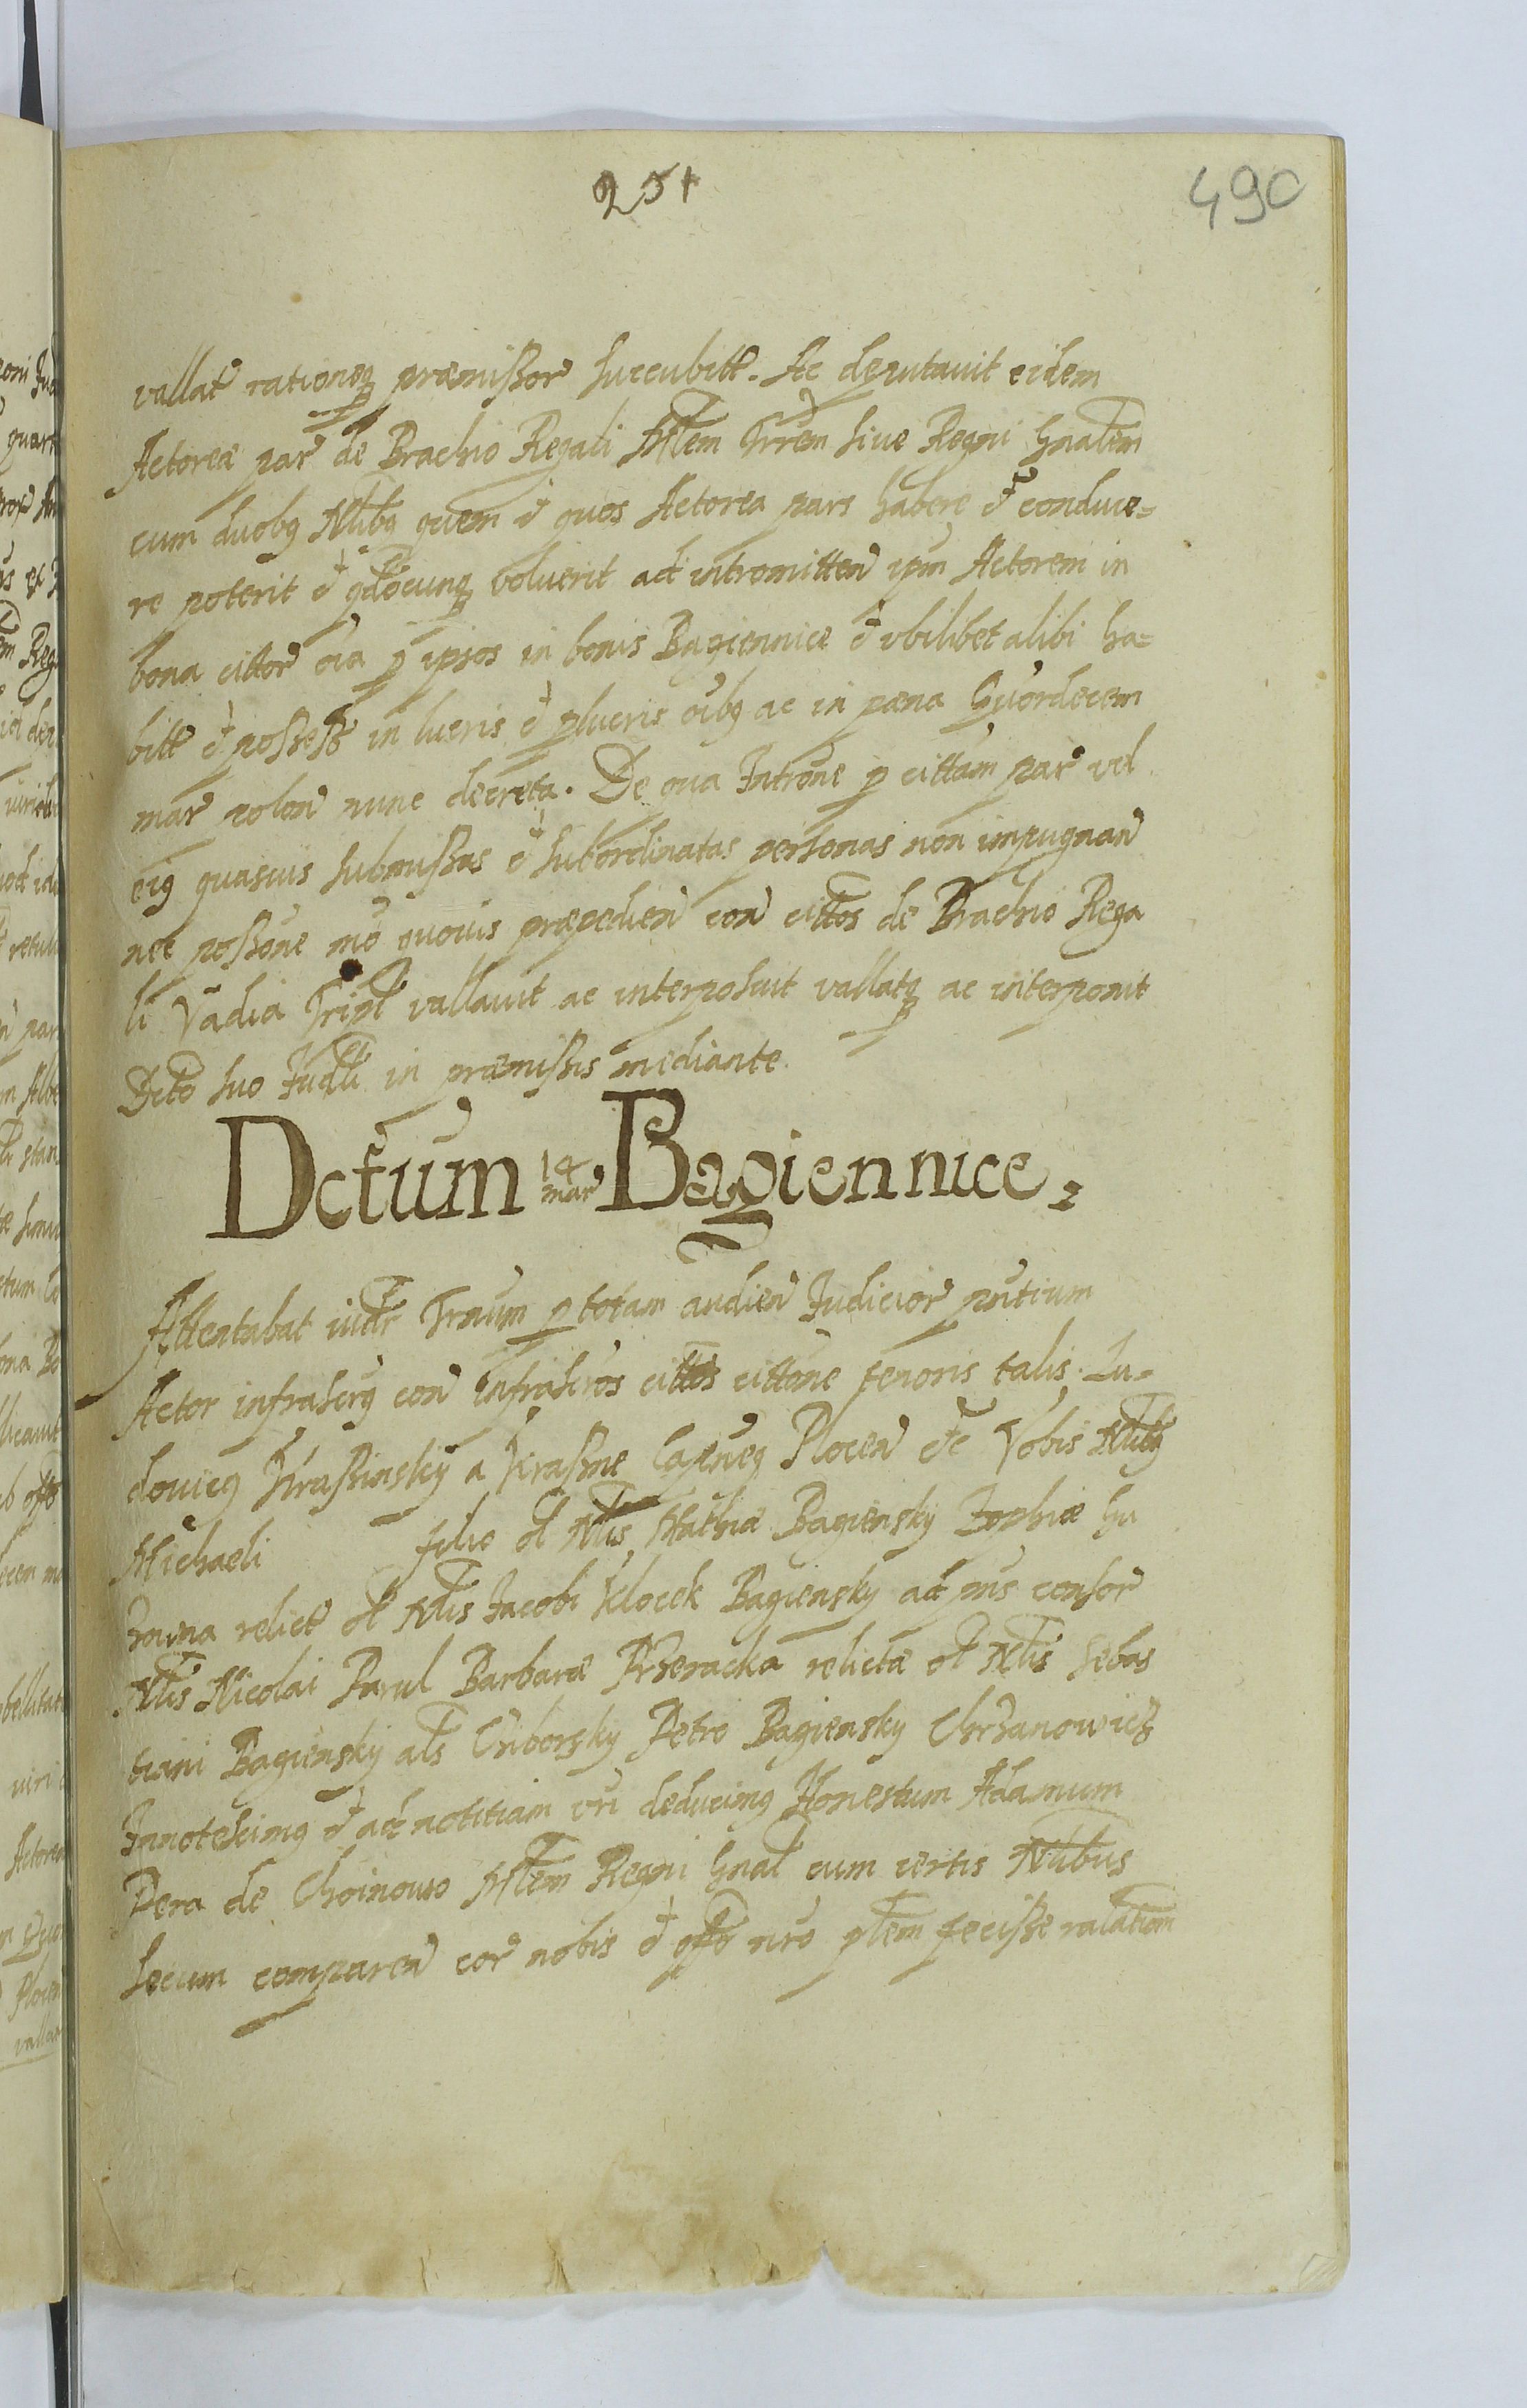 251
490
vallat rationeq præmissor succubitt. Ac deputavit eidem
Actoreæ par de Brachio Regali Mlem Trrem sive Regni Gnalem
cum duobq Nlibq quem et quos Actorea pars habere et conduce=
re poterit et qdocunq voluerit ad intromitten ipm Actorem in
bona cittor oia p ipsos in bonis Bagiennice et vbilibet alibi ha=
bitt et possess in lucris et plucris oibq ac in pæna Qvordecem
mar polon nunc decreta. De qua Intrõne p cittam par vel
eiq quasvis submissas et subordinatas personas non impugnan
nec possõne mõ quovis præpedien con cittos de Brachio Rega
li Vadia Tripl vallavit ac interposuit vallatq ac interponit
Dcto suo Judli in præmissis mediante.
Dctum 14 mar Bagiennice.
Attentabat Trnum p totam audien Judicior pntium
Actor infrascrq con infrascros cittos cittõne tenoris talis. Lu=
dovicq Krassinsky a Krassne Capneq Plocen etc Vobis Nlibq
Michaeli filio ol Nlis Mathiæ Bagiensky Zophiæ Su
relict ol Nlis Jacobi Klocek Bagiensky ad pns consor
Nlis Nicolai Parul Barbaræ relictæ ol Nlis Sebas
tiani Bagiensky als Ciborsky Petro Bagiensky Chrzanowicz
Innotescimq et ad notitiam vri deducimq Honestum Adamum
Pera de Choinowo Mlem Regni Gnal cum certis Nlibus
secum comparen cor nobis et offo nro plem fecisse ralationem